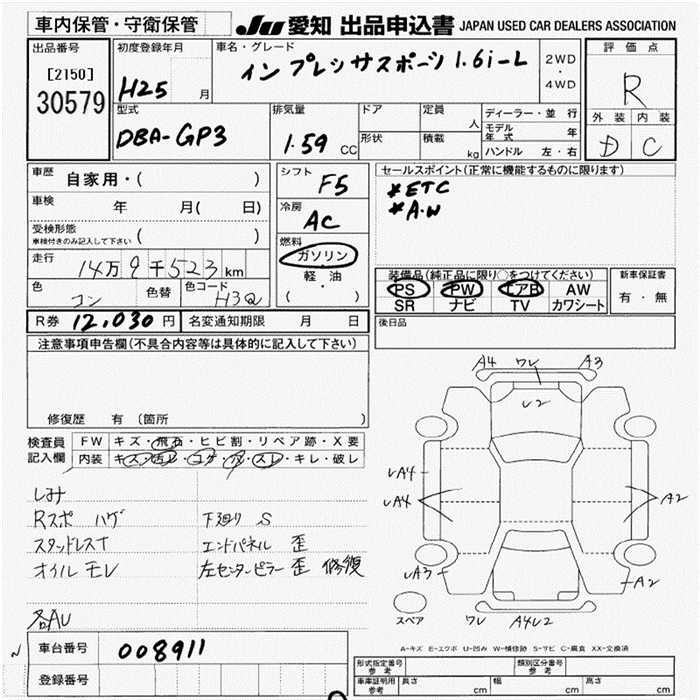 車内保管・守衛保管
JU 愛知 出品申込書 JAPAN USED CAR DEALERS ASSOCIATION
出品番号
[2150]
30579
初度登録年月
H25 月
車名・グレード
インプレッサスポーツ 1.6i-L
2WD
・
4WD
評価点
R
外装 内装
D C
型式
DBA-GP3
排気量
1.59 CC
ドア
形状
定員
人
積載
kg
ディーラー・並行
モデル年式 年
ハンドル 左・右
車歴
自家用・( )
車検
年 月( 日)
受検形態
車検付きのみ記入して下さい ( )
走行
14万9千523km
色
コン
色替
色コード
H3Q
シフト
F5
冷房
AC
燃料
ガソリン
軽・油
( ・ )
セールスポイント(正常に機能するものに限ります)
*ETC
*A.W
装備品(純正品に限り○をつけてください)
PS PW エアB AW
SR ナビ TV カワシート
新車保証書
有・無
R券 12,030円
名変通知期限 月 日
後日品
注意事項申告欄(不具合内容等は具体的に記入して下さい)
修復歴 有 (箇所 )
検査員記入欄
FW キズ・飛石・ヒビ割・リペア跡・X要
内装 キズ・汚レ・コゲ・穴・スレ・キレ・破レ
しみ
Rスポ ハゲ 下廻り S
スタッドレスT エンドパネル 歪
オイルモレ 左センターピラー歪 修復
各AU
A4 ワレ A3
U2
A4
A4
A2
A3
A2
スペア
ワレ A4U2
A-キズ E-エクボ U-凹み W-補修跡 S-サビ C-腐食 XX-交換済
車台番号 008911
登録番号
形式指定番号 参考
類別区分番号 参考
車庫証明用 参考
長さ cm
幅 cm
高さ cm